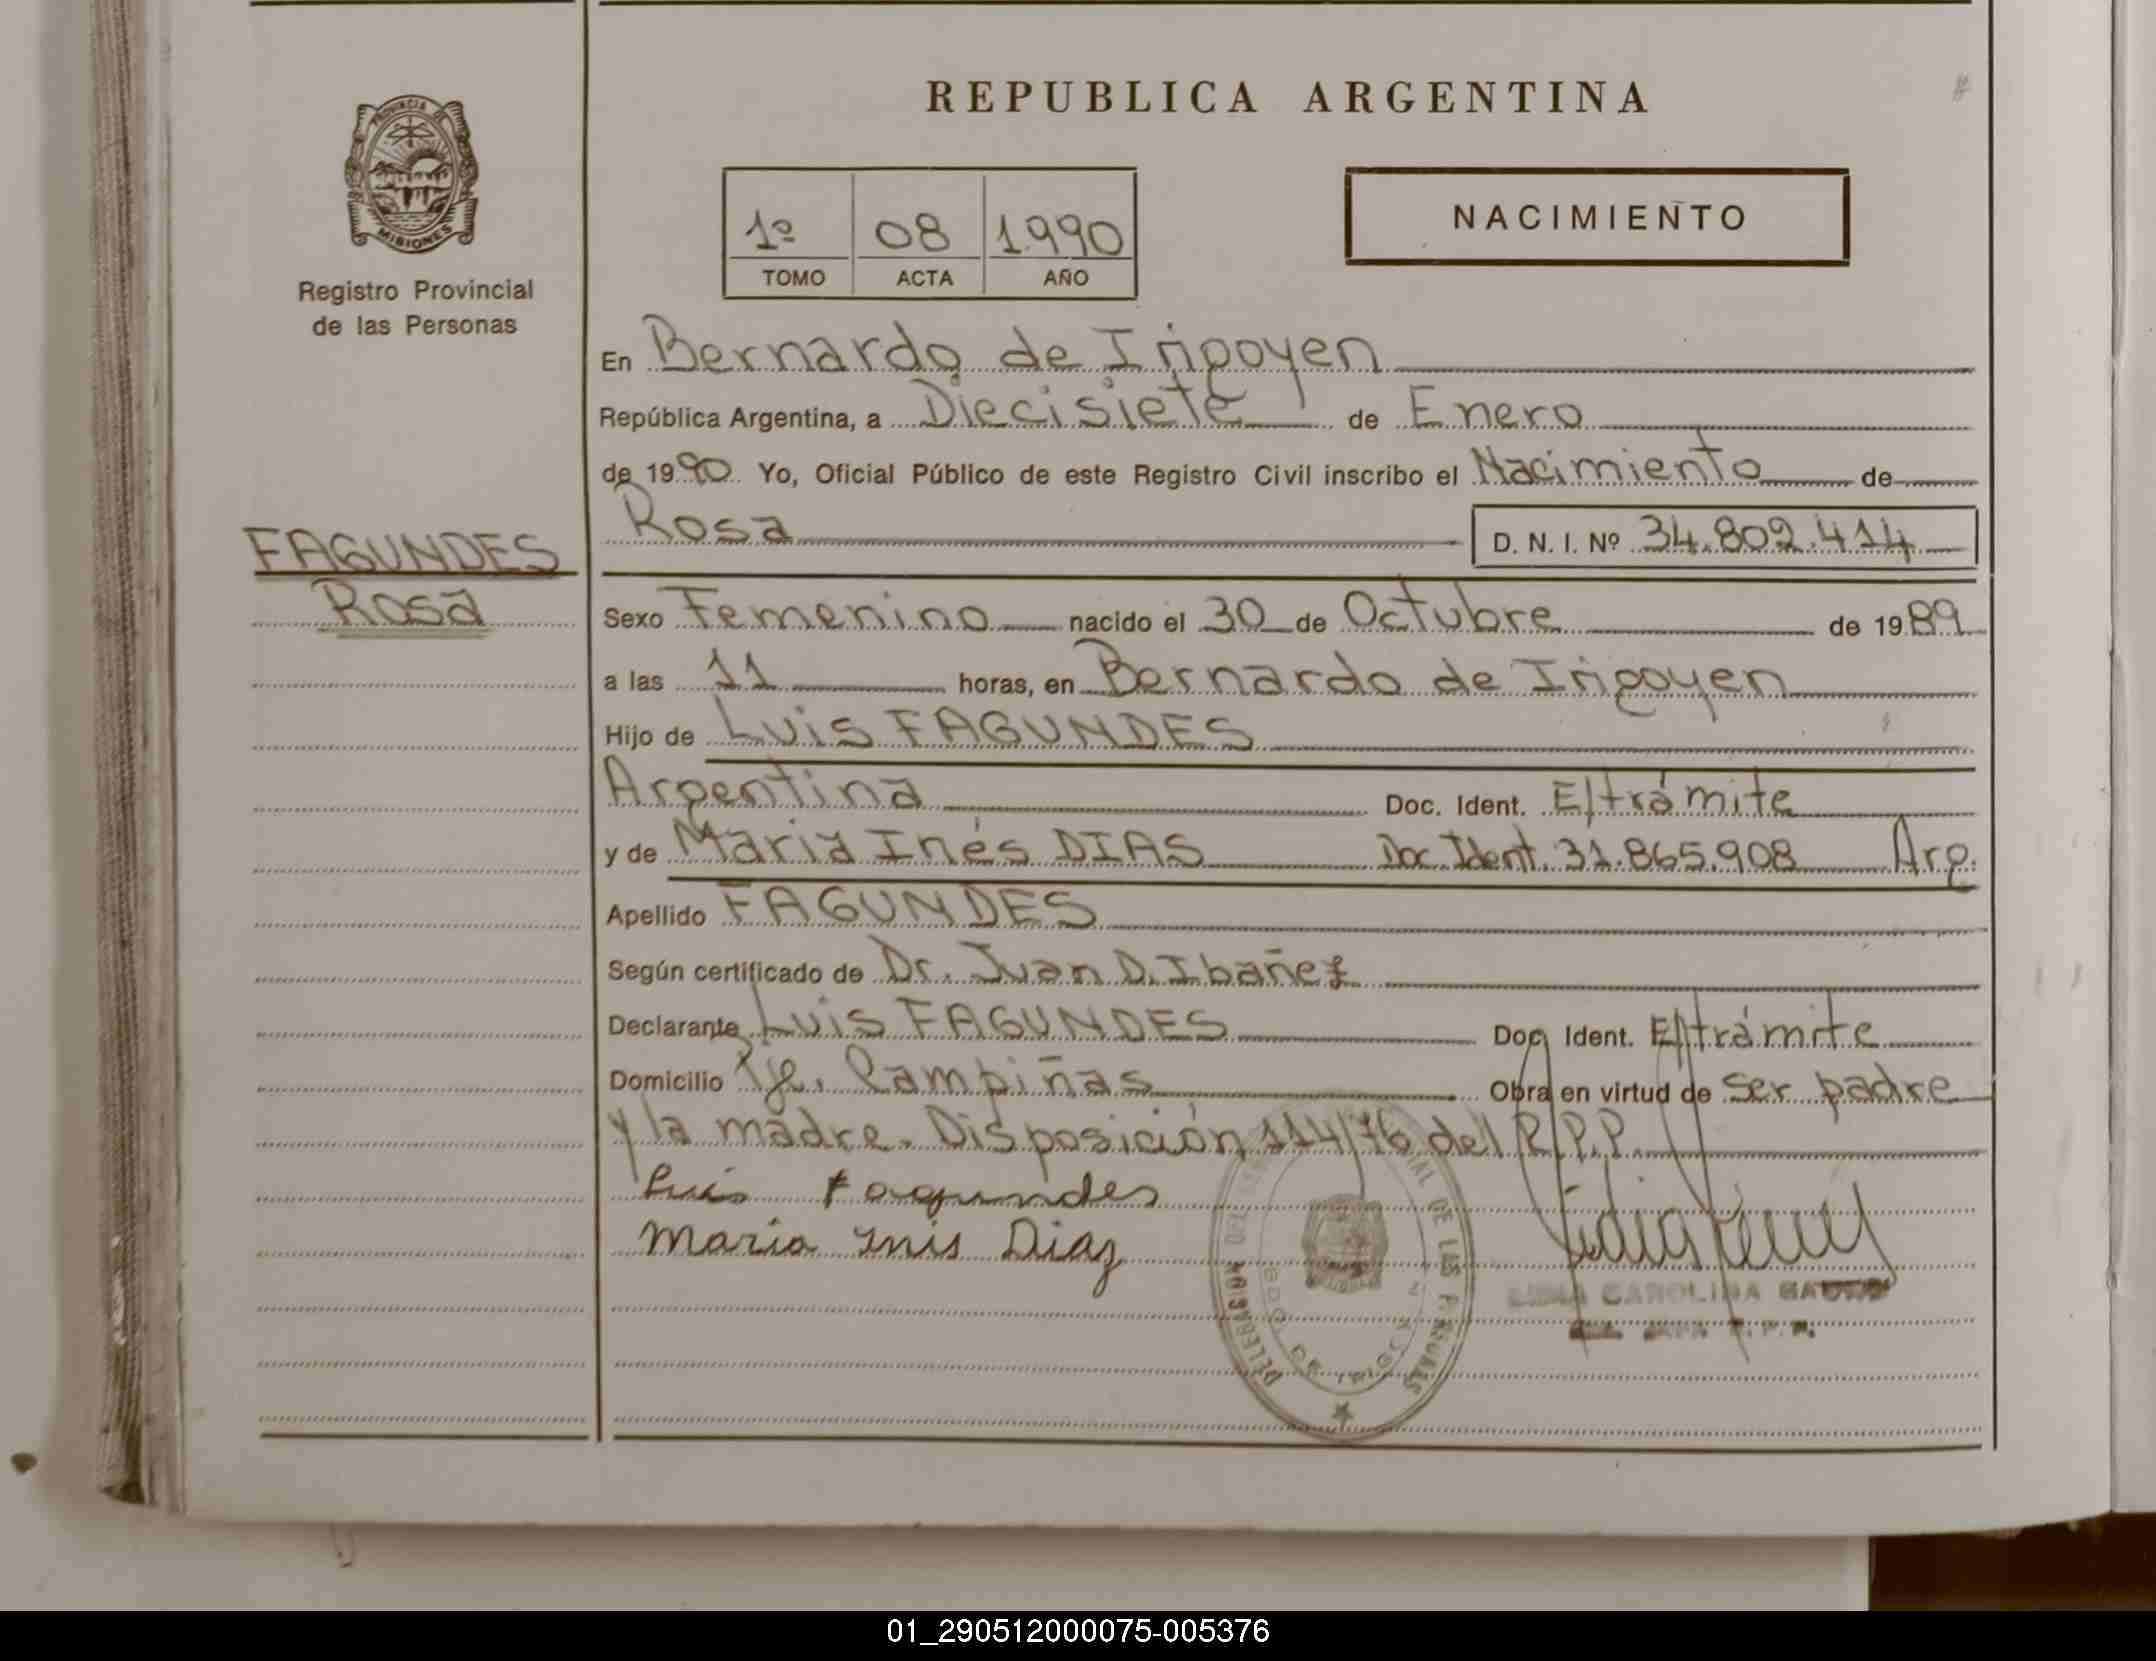 REPUBLICA ARGENTINA
PROVINCIA DE
MISIONES
Registro Provincial
de las Personas
1º 08 1.990
TOMO ACTA AÑO
NACIMIENTO
En Bernardo de Irigoyen
República Argentina, a Diecisiete de Enero
de 1990 Yo, Oficial Público de este Registro Civil inscribo el Nacimiento de
Rosa D. N. I. Nº 34.802.414
FAGUNDES
Rosa
Sexo Femenino nacido el 30 de Octubre de 1989
a las 11 horas, en Bernardo de Irigoyen
Hijo de Luis FAGUNDES
Argentina Doc. Ident. E/trámite
y de Maria Inés DIAS Doc Ident. 31.865.908 Arg.
Apellido FAGUNDES
Según certificado de Dr. Juan D. Ibañez
Declarante Luis FAGUNDES Doc. Ident. E/trámite
Domicilio Pje. Campiñas Obra en virtud de ser padre
y la madre. Disposición 114/76 del R.P.P.
Luis Fagundes
Maria Inis Diaz
DELEGACION DEL DE LAS PERSONAS
CAROLINA
01_290512000075-005376